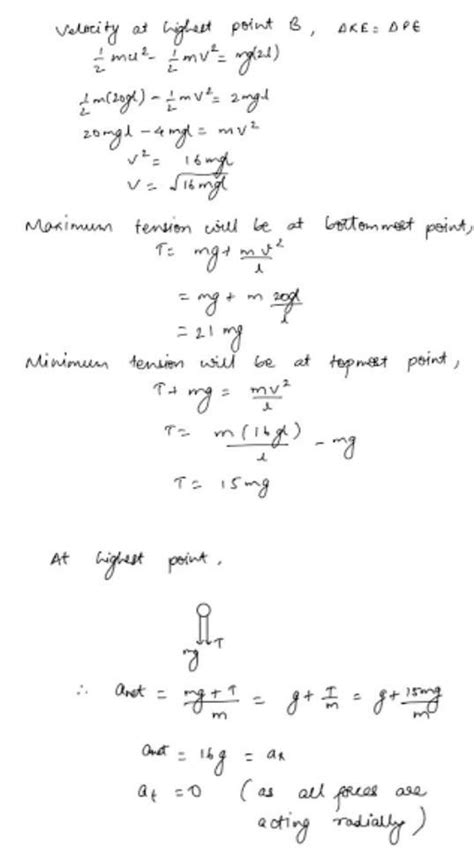 Velocity at highest point B, ΔKE = ΔPE
1/2 mu² - 1/2 mv² = mg(2l)
1/2 m(20gl) - 1/2 mv² = 2mgl
20mgl - 4mgl = mv²
v² = 16mgl
v = √16mgl
Maximum tension will be at bottommost point,
T = mg + mv²/l
= mg + m 20gl/l
= 21 mg
Minimum tension will be at topmost point,
T + mg = mv²/l
T = m(16gl)/l - mg
T = 15mg
At highest point,
mg T
∴ anet = mg + T/m = g + T/m = g + 15mg/m
anet = 16g = aR
at = 0 (as all forces are
acting radially)